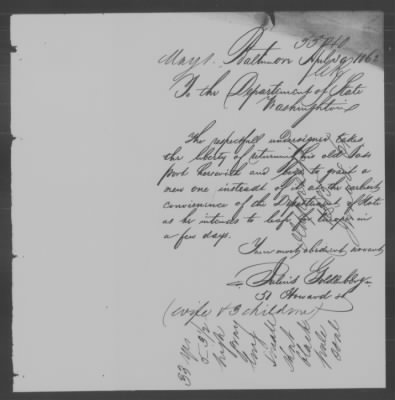 35940
May 1. Baltimore April 29, 1862
To the Department of State
Washington
The respectfull undersigned takes
the liberty of returning his old Pass
port herewith and begs to grant a
new one instead of it at the earliest
convienience of the Department of State
as he intends to leave for Europe in
a few days.
Your most obedient servant
Julius Goldsborg
51 Howard st
(wife & 3 children)
33 yrs
5 - 3/2
high
gray
long
small
short
black
pale
oval